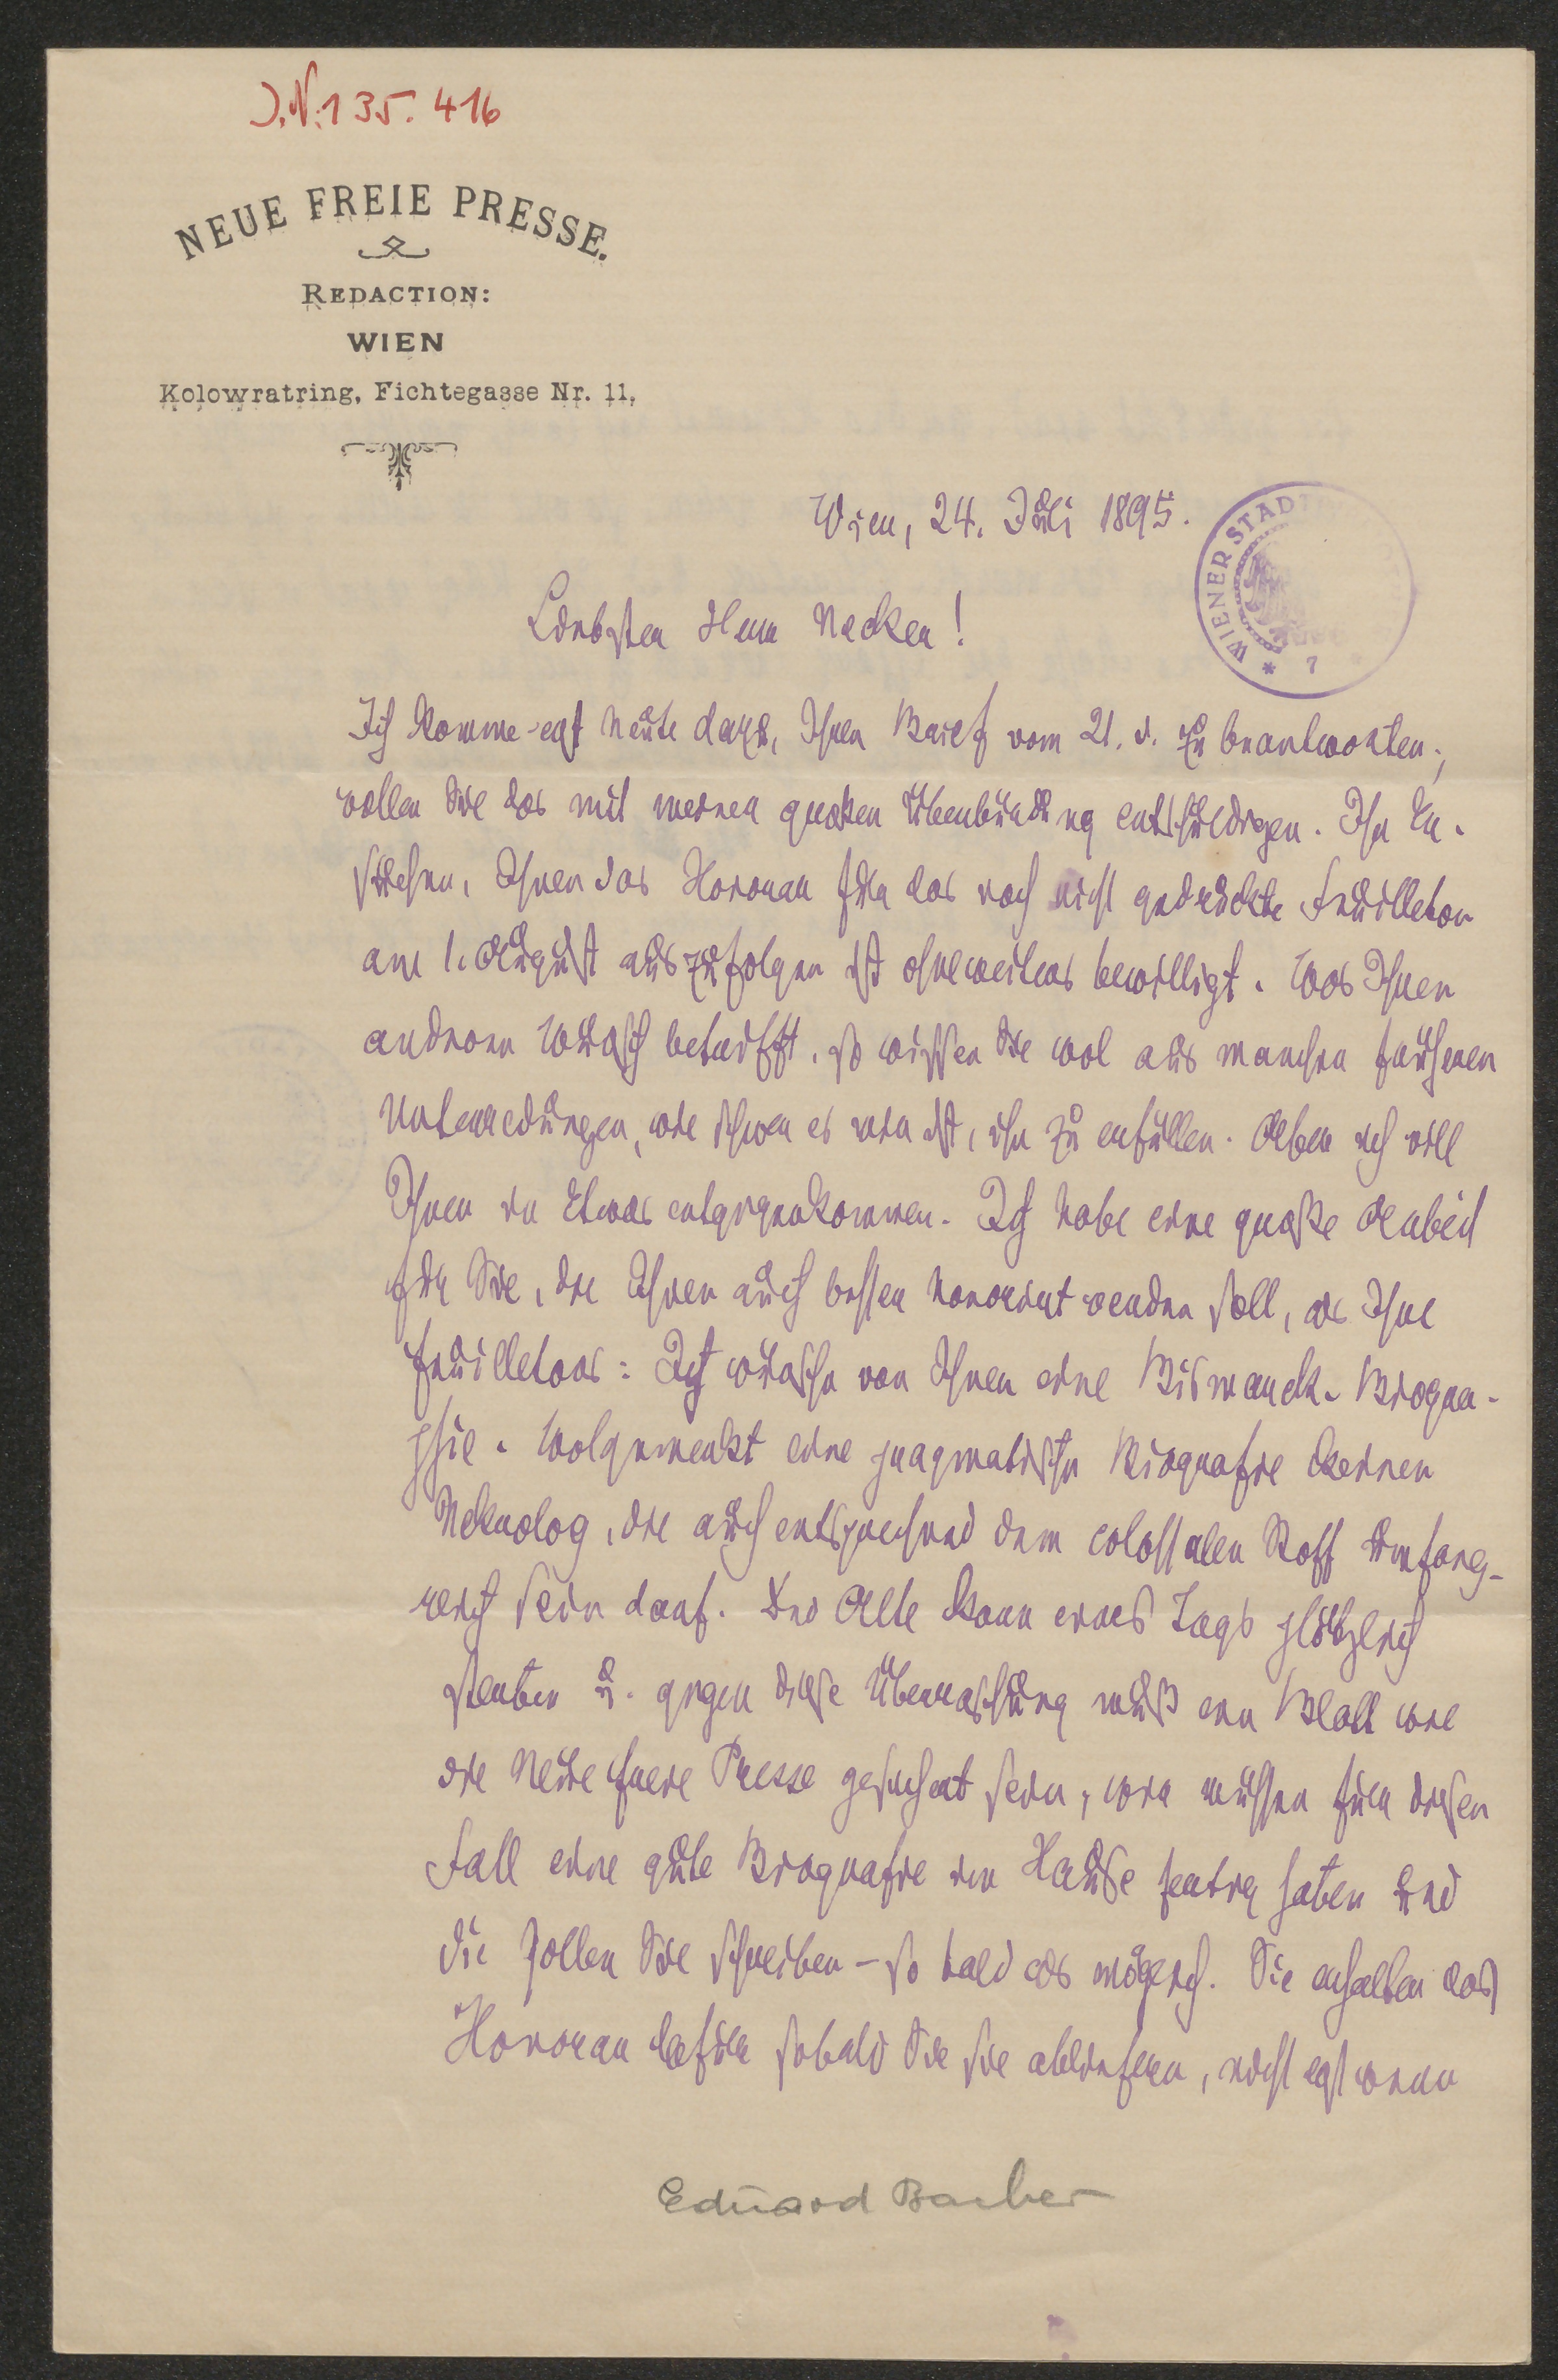 J.N. 135.416
NEUE FREIE PRESSE.
REDACTION:
WIEN
Kolowratring, Fichtegasse Nr. 11.
Wien, 24. Juli 1895.
WIENER STADT
* 7
Liebster Herr Necker!
Ich komme erst heute dazu, Ihren Brief vom 21. d. zu beantworten;
wollen Sie das mit meiner großen Überbürdung entschuldigen. Ihr Er-
suchen, Ihnen das Honorar für das noch nicht gedruckte Feuilleton
am 1. August auszufolgen ist ohneweiters bewilligt. Was Ihren
anderen Wunsch betrifft, so wissen Sie wol aus manchen früheren
Unterredungen, wie schwer es mir ist, ihn zu erfüllen. Aber ich will
Ihnen in Etwas entgegenkommen. Ich habe eine große Arbeit
für Sie, die Ihnen auch besser honorirt werden soll, als Ihre
Feuilletons: Ich wünsche von Ihnen eine Bismarck-Biogra-
phie. Wolgemerkt eine pragmatische Biografie keinen
Nekrolog, die auch entsprechend dem colossalen Stoff umfang-
reich sein darf. Der Alte kann eines Tags plötzlich
sterben u. gegen diese Überraschung muß ein Blatt wie
die Neue Freie Presse gesichert sein, wir müssen für diesen
Fall eine gute Biografie im Hause fertig haben und
die sollen Sie schreiben – so bald als möglich. Sie erhalten das
Honorar dafür sobald Sie sie abliefern, nicht erst wenn
Eduard Bacher